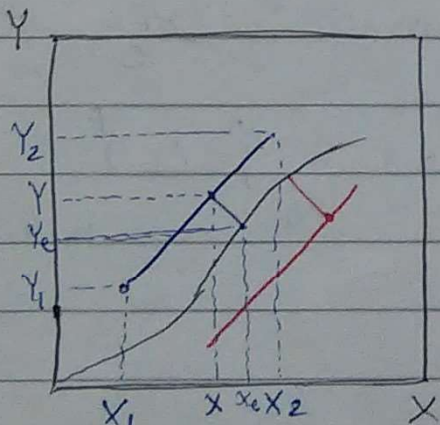 Y
Y₂
Y
Ye
Y₁
X₁ X xe X₂ X